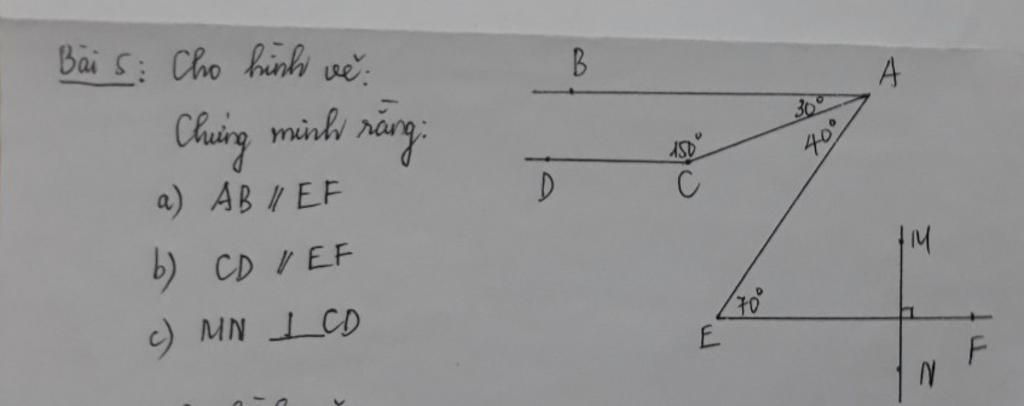 Bài 5: Cho hình vẽ:
Chứng minh rằng:
a) AB // EF
b) CD // EF
c) MN ⊥ CD
B
A
30°
40°
150°
D
C
M
70°
E
F
N